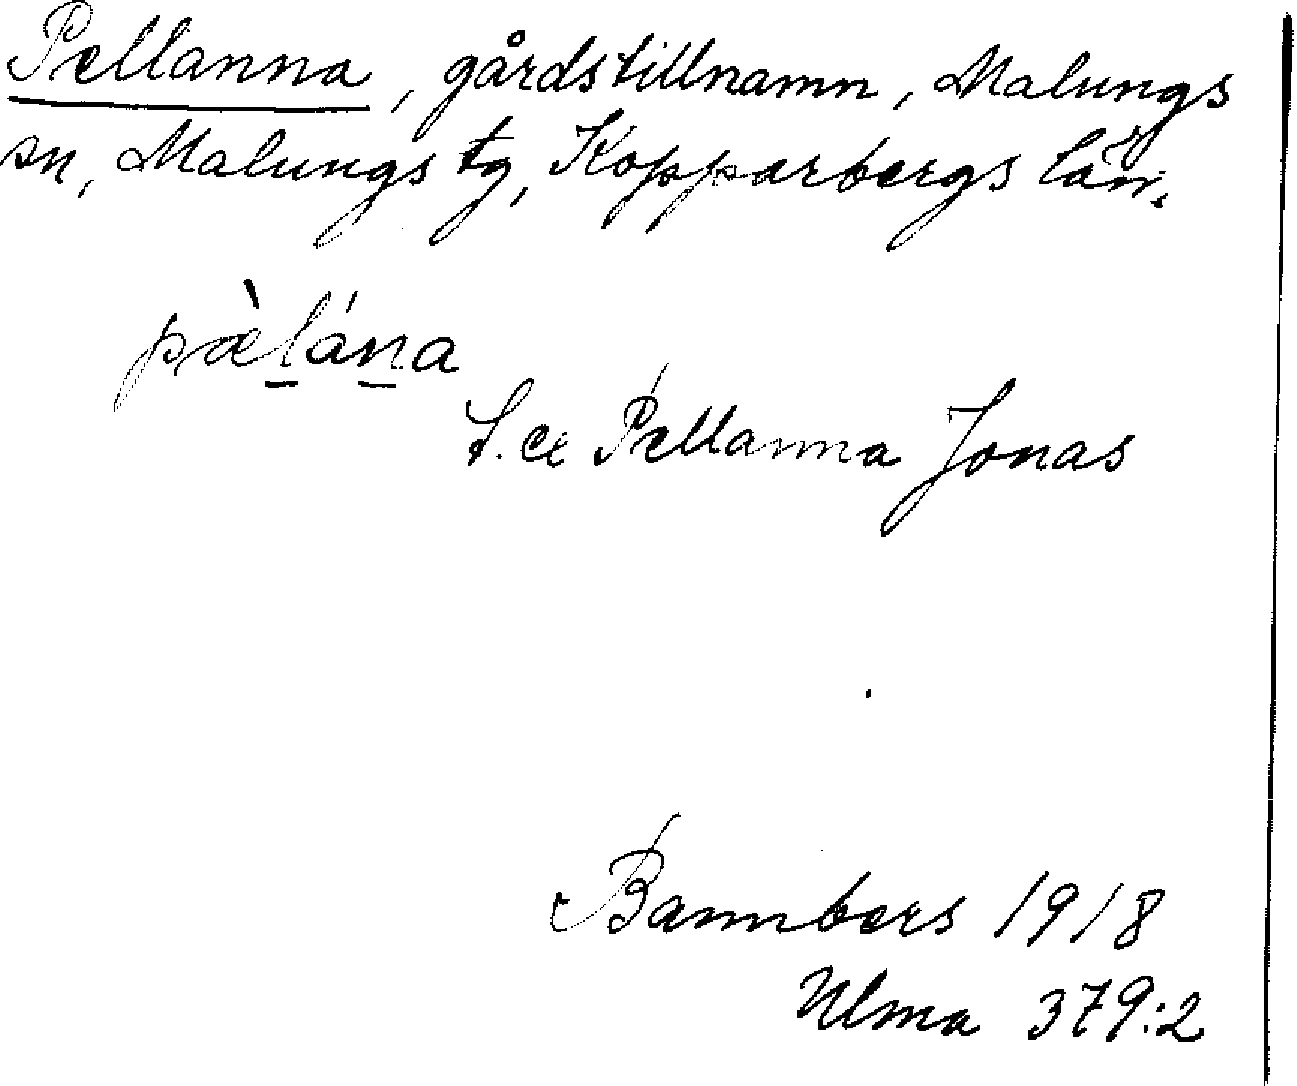 Pellanna, gårdstillnamn, Malungs
sn, Malungs tg, Kopparbergs län.
pæ̀l̲án̲a
t. ex Pellanna Jonas
Bannbers 1918
Ulma 379:2